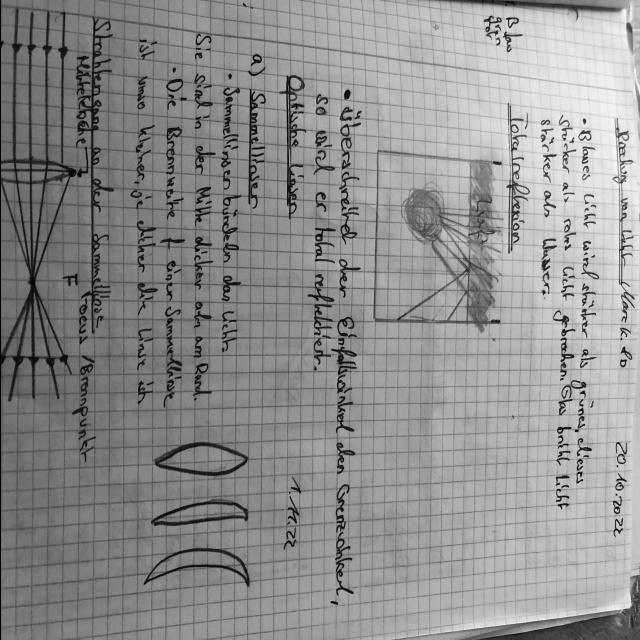 Brechung von Licht
20.10.2022
• Blaues Licht wird stärker als grünes, dieses
stärker als rotes Licht gebrochen. Glas bricht Licht
stärker als Wasser.
Totalreflexion
• Überschreitet der Einfallswinkel den Grenzwinkel,
so wird er total reflektiert.
1.11.22
Optische Linsen
a) Sammellinsen
• Sammellinsen bündeln das Licht.
Sie sind in der Mitte dicker als am Rand.
• Die Brennweite f einer Sammellinse
ist umso kleiner, je dicker die Linse ist
Strahlengang an der Sammellinse
Mittelebene
F
Focus / Brennpunkt